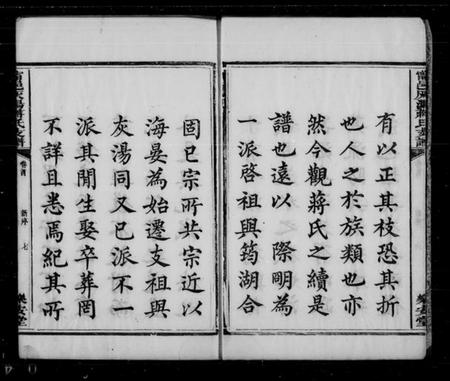 有以正其枝恐其折
也人之於族類也亦
然今觀蔣氏之續是
譜也遠以際明為
一派啓祖與筠湖合
固已宗所共宗近以
海晏為始遷支祖與
灰湯同又已派不一
派其間生娶卒葬罔
不詳且悉焉紀其所
卷首
新序
七
樂安堂